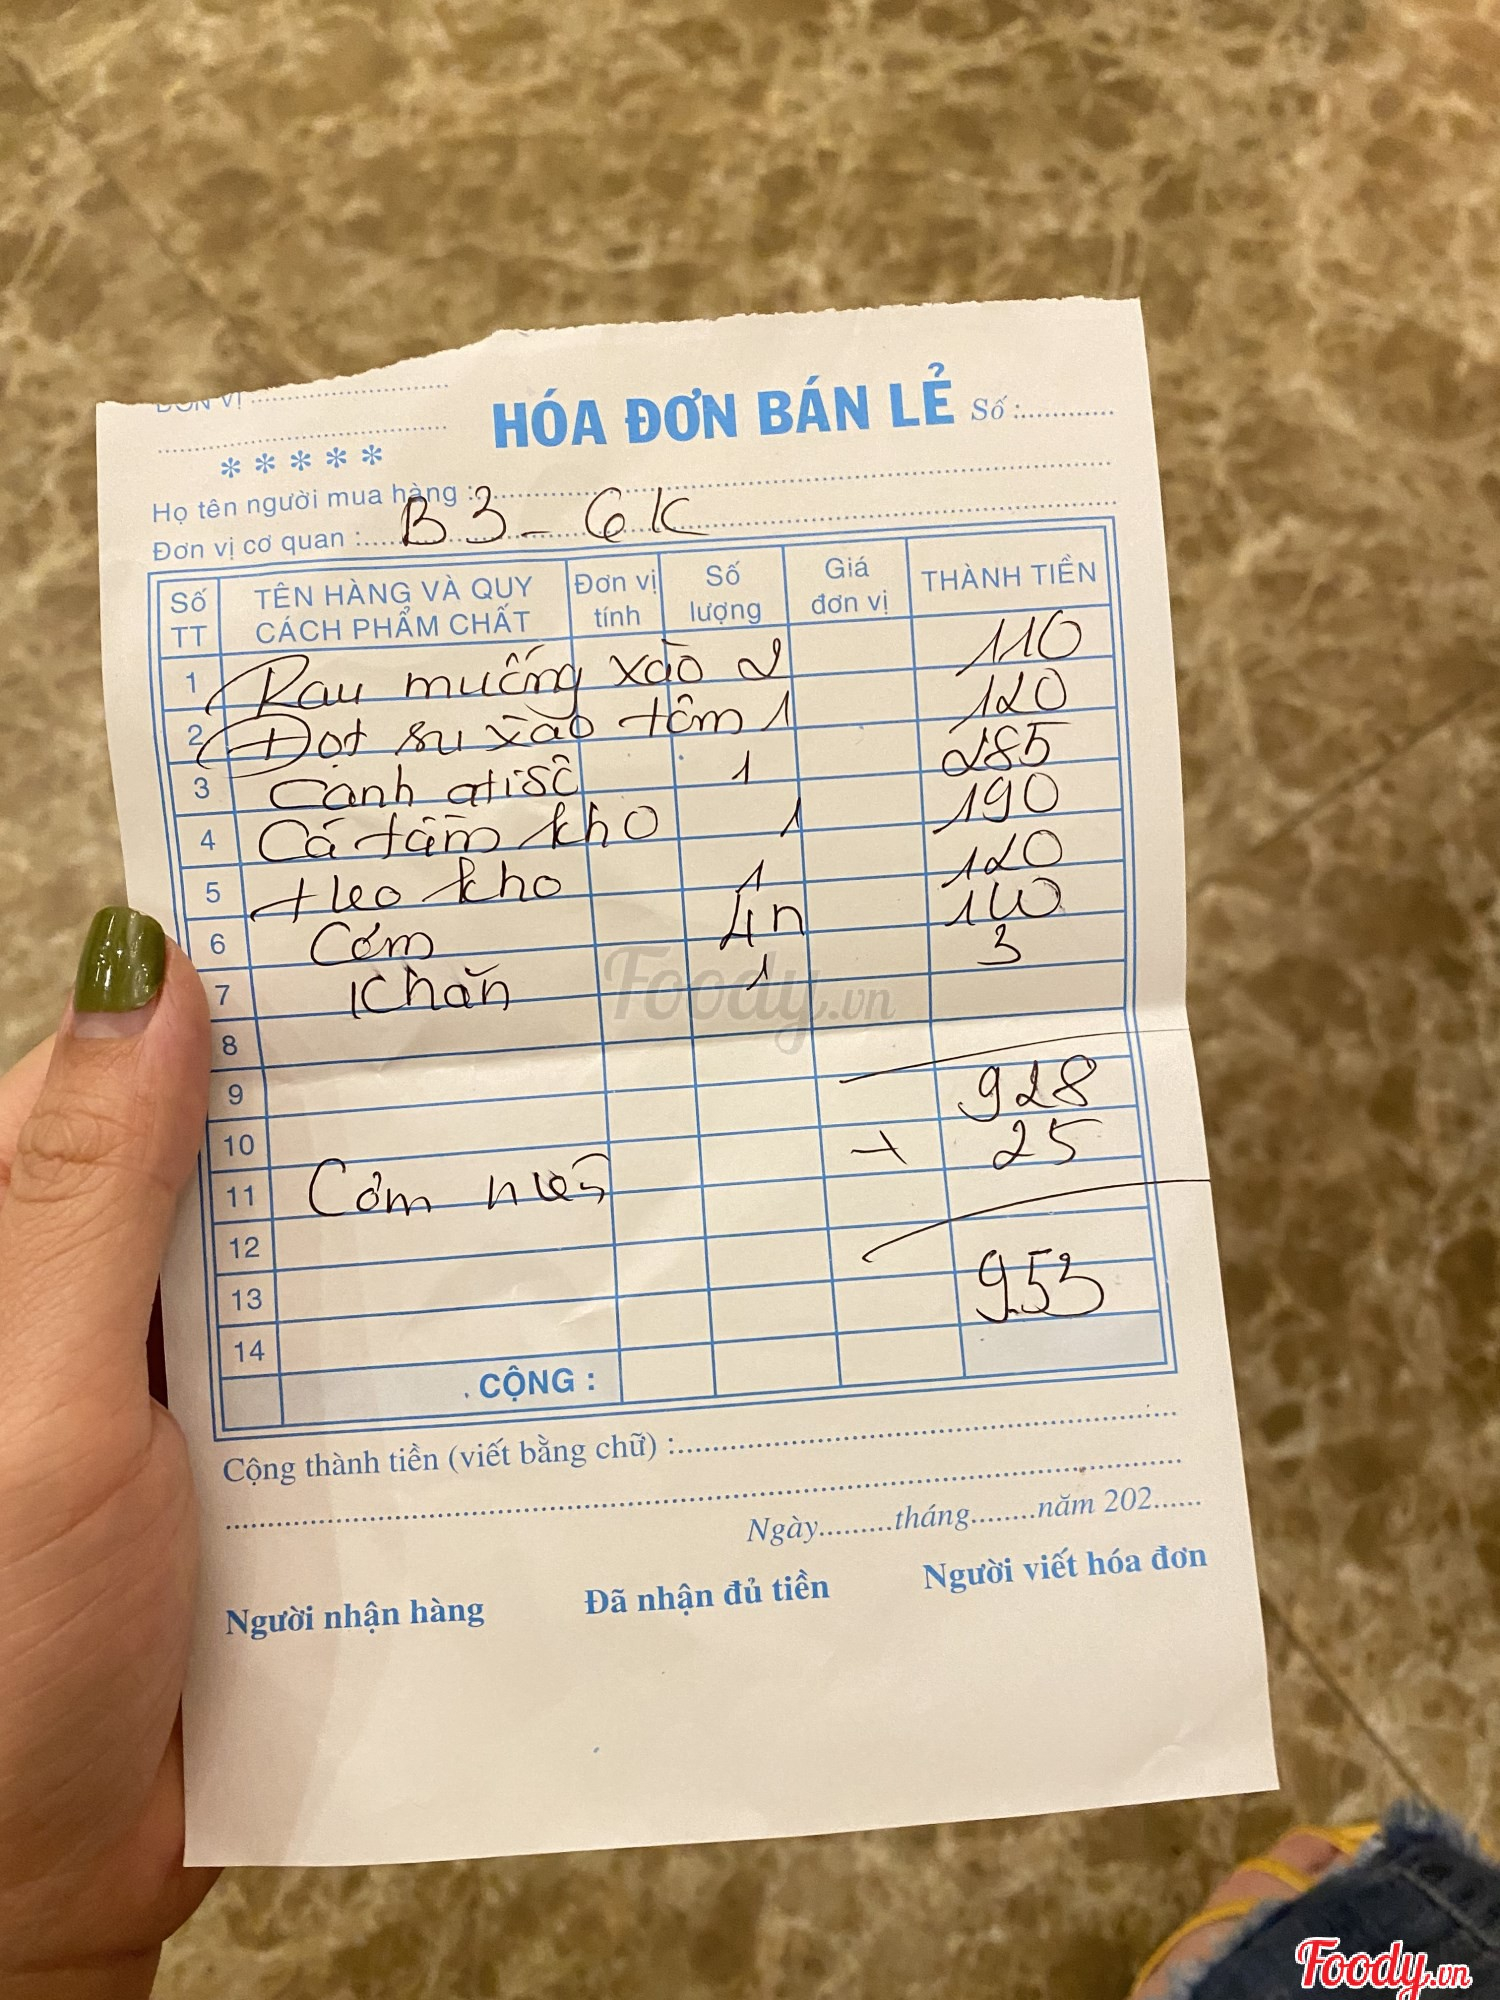 ĐƠN VỊ
HÓA ĐƠN BÁN LẺ Số :
* * * * *
Họ tên người mua hàng :
Đơn vị cơ quan : B3 - 6K
Số TT TÊN HÀNG VÀ QUY CÁCH PHẨM CHẤT Đơn vị tính Số lượng Giá đơn vị THÀNH TIỀN
1 Rau muống xào 2 110
2 Đọt su xào tôm 1 120
3 Canh atisô 1 285
4 Cá tầm kho 1 190
5 Heo kho 1 120
6 Cơm 4n 100
7 Khăn 1 3
8
9 928
10 + 25
11 Cơm
12
13 953
14
CỘNG :
Cộng thành tiền (viết bằng chữ) :
Ngày.........tháng........năm 202......
Người nhận hàng Đã nhận đủ tiền Người viết hóa đơn
Foody.vn
Foody.vn